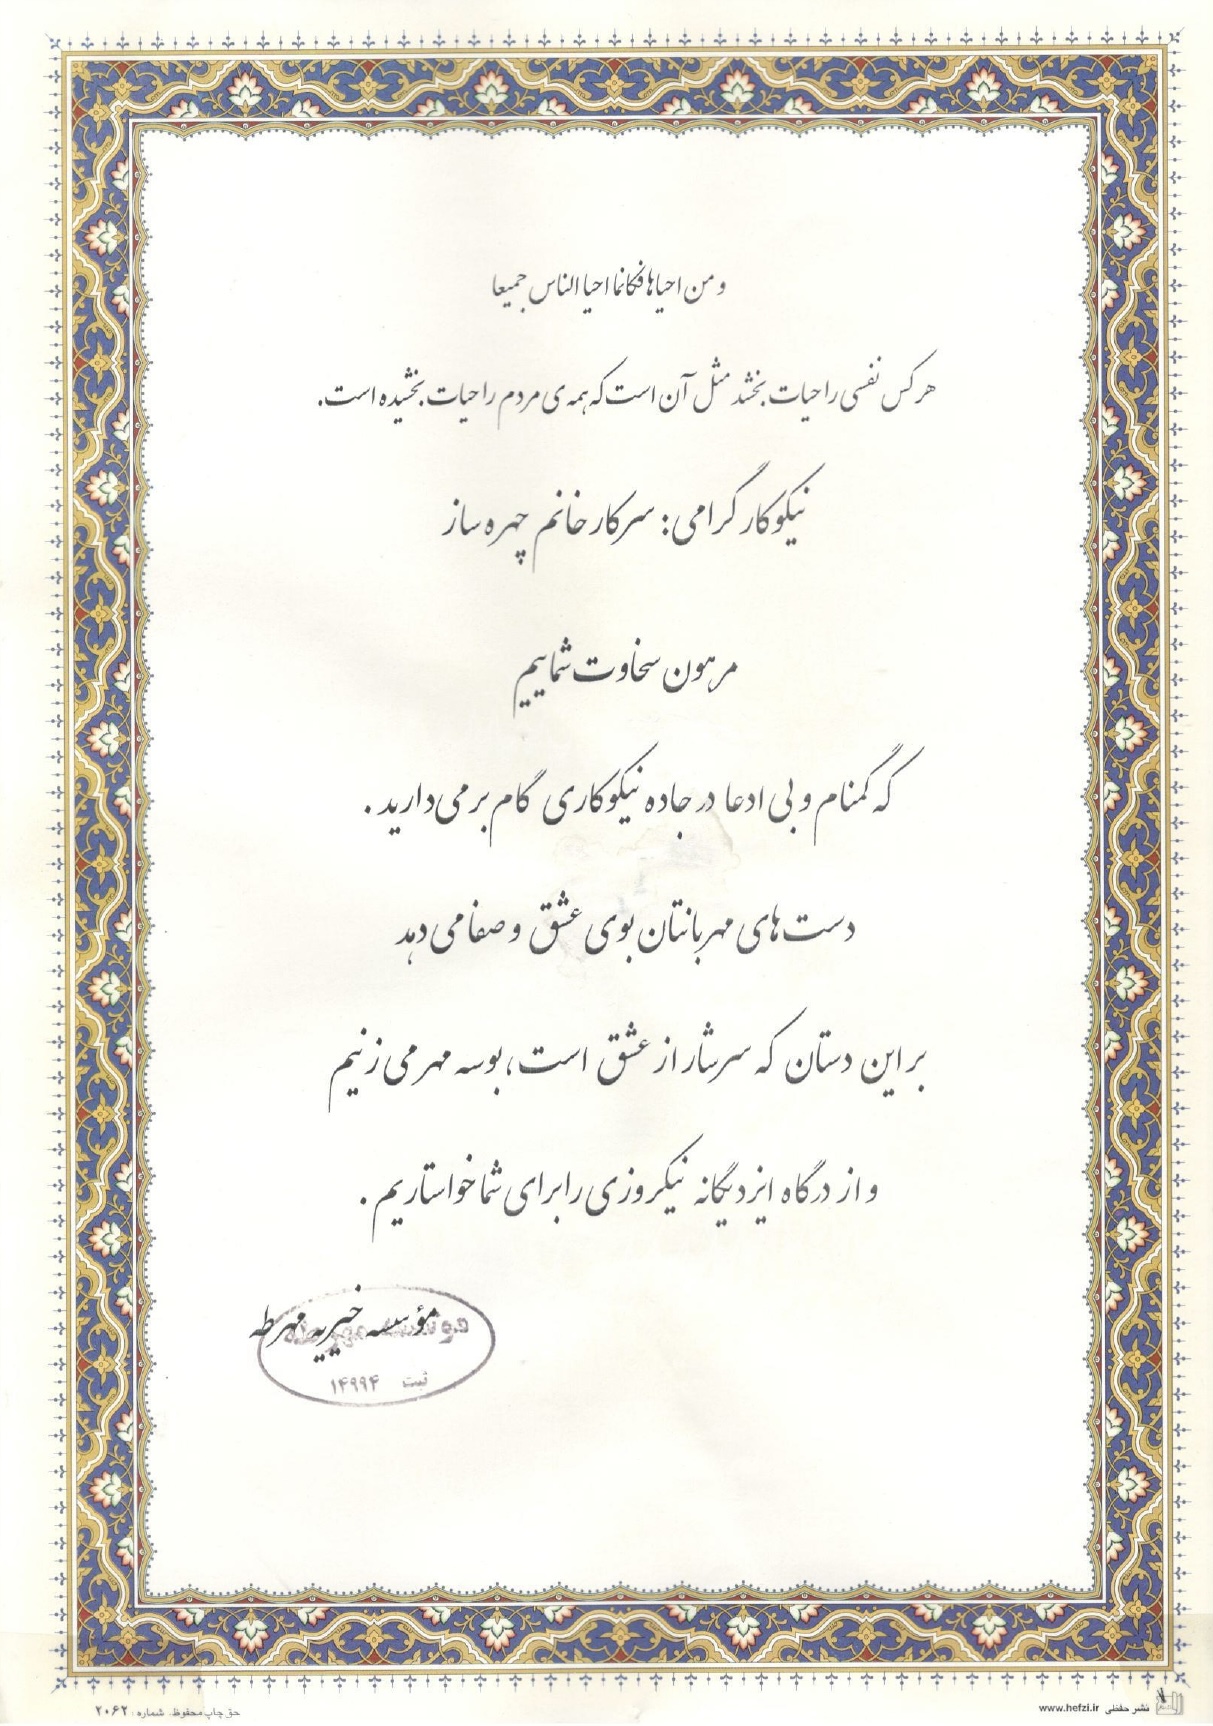 و من احیاها فکانما احیا الناس جمیعا
هر کس نفسی را حیات بخشد مثل آن است که همه ی مردم را حیات بخشیده است.
نیکوکار گرامی: سرکار خانم چهره ساز
مرهون سخاوت شماییم
که گمنام و بی ادعا در جاده نیکوکاری گام بر می دارید.
دست های مهربانتان بوی عشق و صفا می دهد
بر این دستان که سرشار از عشق است، بوسه مهر می زنیم
و از درگاه ایزد یگانه نیکروزی را برای شما خواستاریم.
مؤسسه خیریه مهر طه
ثبت ۱۴۹۹۴
نشر حفظی www.hefzi.ir
حق چاپ محفوظ. شماره: ۲۰۶۲